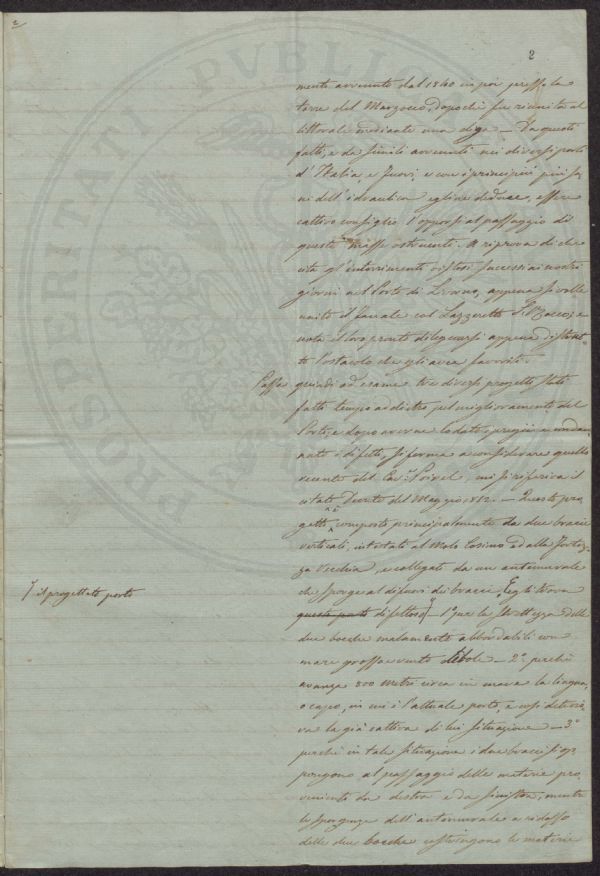 2
2
mente avvenuto dal 1840 in poi presso la
torre del Marzocco, dopochè fu riunita al
littorale mediante una diga — Da questi
fatti, e da simili avvenuti nei diversi porti
d'Italia, e fuori, e con i principii più sa-
ni dell'idrautica egli ne deduce, essere
cattivo consiglio l'opporsi al passaggio di
queste masse ostruenti. A riprova di che
cita gl'interrimenti vistosi successi ai nostri
giorni nel Porto di Livorno, appena si volle
unito il fanale col Lazzeretto S. Rocco; e
nota il loro pronto dileguarsi appena distrut-
to l'ostacolo che gli avea favoriti.
Passa quindi ad esame tre diversi progetti stati
fatti tempo addietro pel miglioramento del
Porto, e dopo averne lodati i pregi, e
i difetti, si ferma a considerare quello
recente del Cav. Poirel, cui si riferisce il
citato Decreto del Maggio 1852. — Questo pro-
getto è composto principalmente da due bracci
verticali, intestati al Molo Cosimo ed alla Fortez-
za Vecchia, e collegati da un antemurale
che sporge al difuori dei bracci. Egli trova
questo porto difettoso — 1° per la strettezza delle
il progettato porto
due bocche malamente abbordabili con
mare grosso e vento debole — 2° perchè
avanza 800 metri circa in mare la lingua,
o capo, in cui è l'attuale porto, e così deterio-
ra la già cattiva di lui situazione — 3°
perchè in tale situazione i due bracci si op-
pongono al passaggio delle materie pro-
venienti da destra e da sinistra, mentre
le sporgenze dell'antemurale a ridosso
delle due bocche costringono le materie
PROSPERITATI PUBLICAE